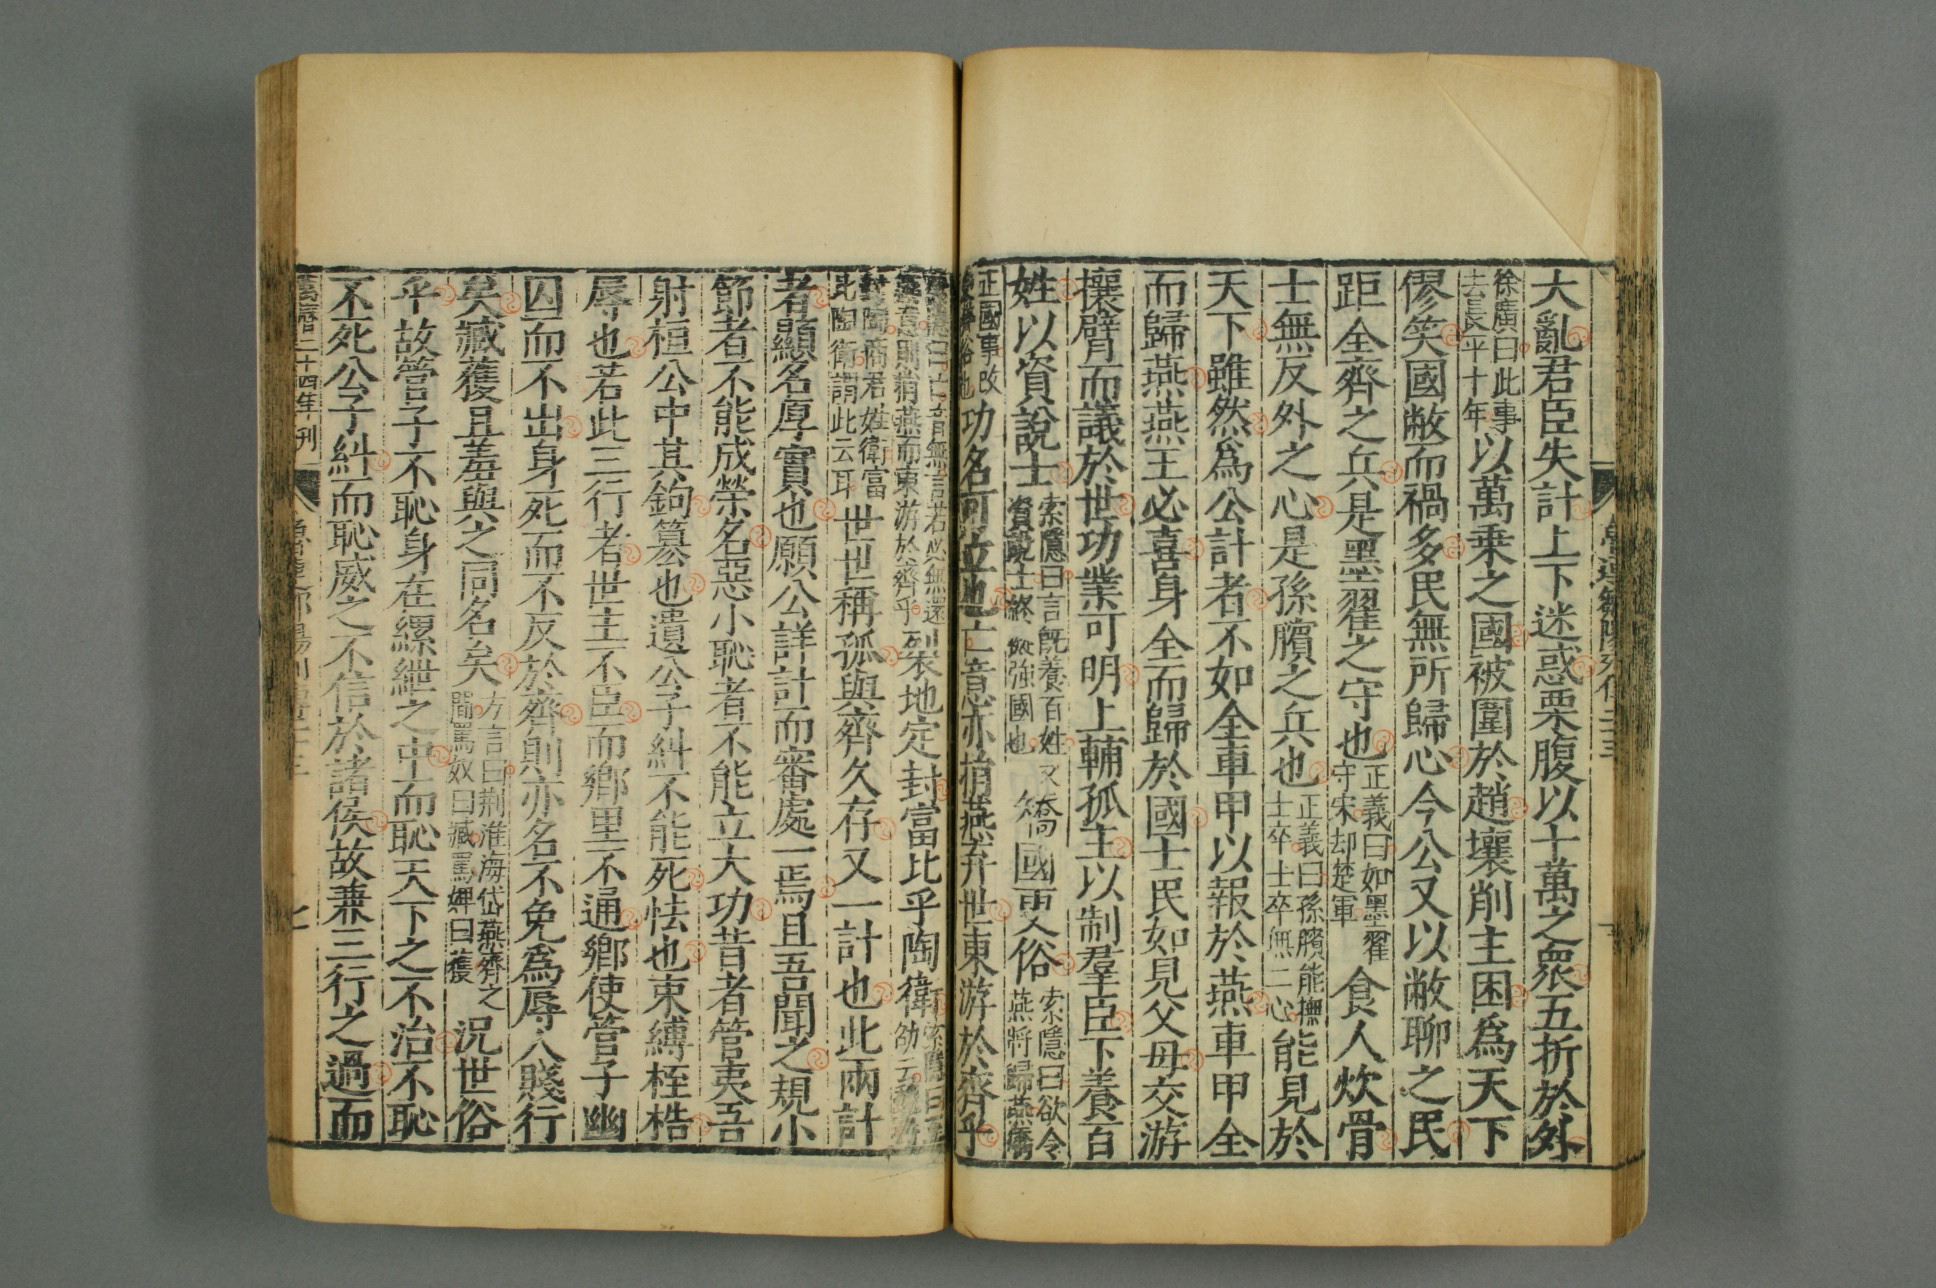 大亂君臣失計上下迷惑栗腹以十萬之衆五折於外
徐廣曰此事去長平十年以萬乘之國被圍於趙壤削主困爲天下
僇笑國敝而禍多民無所歸心今公又以敝聊之民
距全齊之兵是墨翟之守也正義曰如墨翟守宋却楚軍食人炊骨
士無反外之心是孫臏之兵也正義曰孫臏能撫士卒士卒無二心能見於
天下雖然爲公計者不如全車甲以報於燕車甲全
而歸燕燕王必喜身全而歸於國士民如見父母交游
攘臂而議於世功業可明上輔孤主以制羣臣下養百
姓以資說士索隱曰言旣養百姓又資說士終㧞強國也矯國更俗索隱曰欲令燕將歸燕矯
正國事改更弊俗也功名可立也亡意亦捐燕弃世東游於齊乎
索隱曰亡音無言若必無還燕意則捐燕而東游於齊乎裂地定封富比乎陶衛索隱曰
封陶商君姓衛富比陶衛謂此云耳世世稱孤與齊久存又一計也此兩計
者顯名厚實也願公詳計而審處一焉且吾聞之規小
節者不能成榮名惡小恥者不能立大功昔者管夷吾
射桓公中其鉤篡也遺公子糾不能死怯也束縛桎梏
辱也若此三行者世主不臣而鄉里不通鄉使管子幽
囚而不出身死而不反於齊則亦名不免爲辱人賤行
矣臧獲且羞與之同名矣方言曰荆淮海岱燕齊之間罵奴曰臧罵婢曰獲況世俗
乎故管子不恥身在縲紲之中而恥天下之不治不恥
不死公子糾而恥威之不信於諸侯故兼三行之過而
萬曆二十四年刊
七